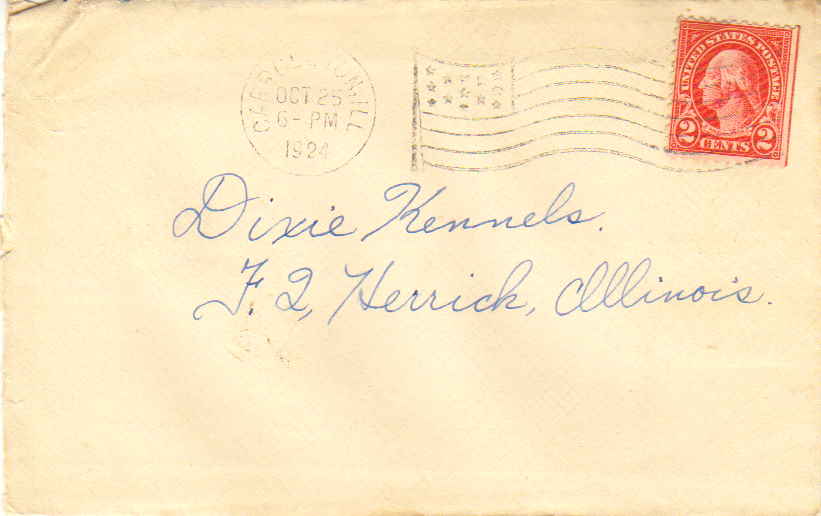 CARROLLTON, ILL.
OCT 25
6 - PM
1924
UNITED STATES POSTAGE
2 CENTS 2
Dixie Kennels.
F. 2, Herrick, Illinois.